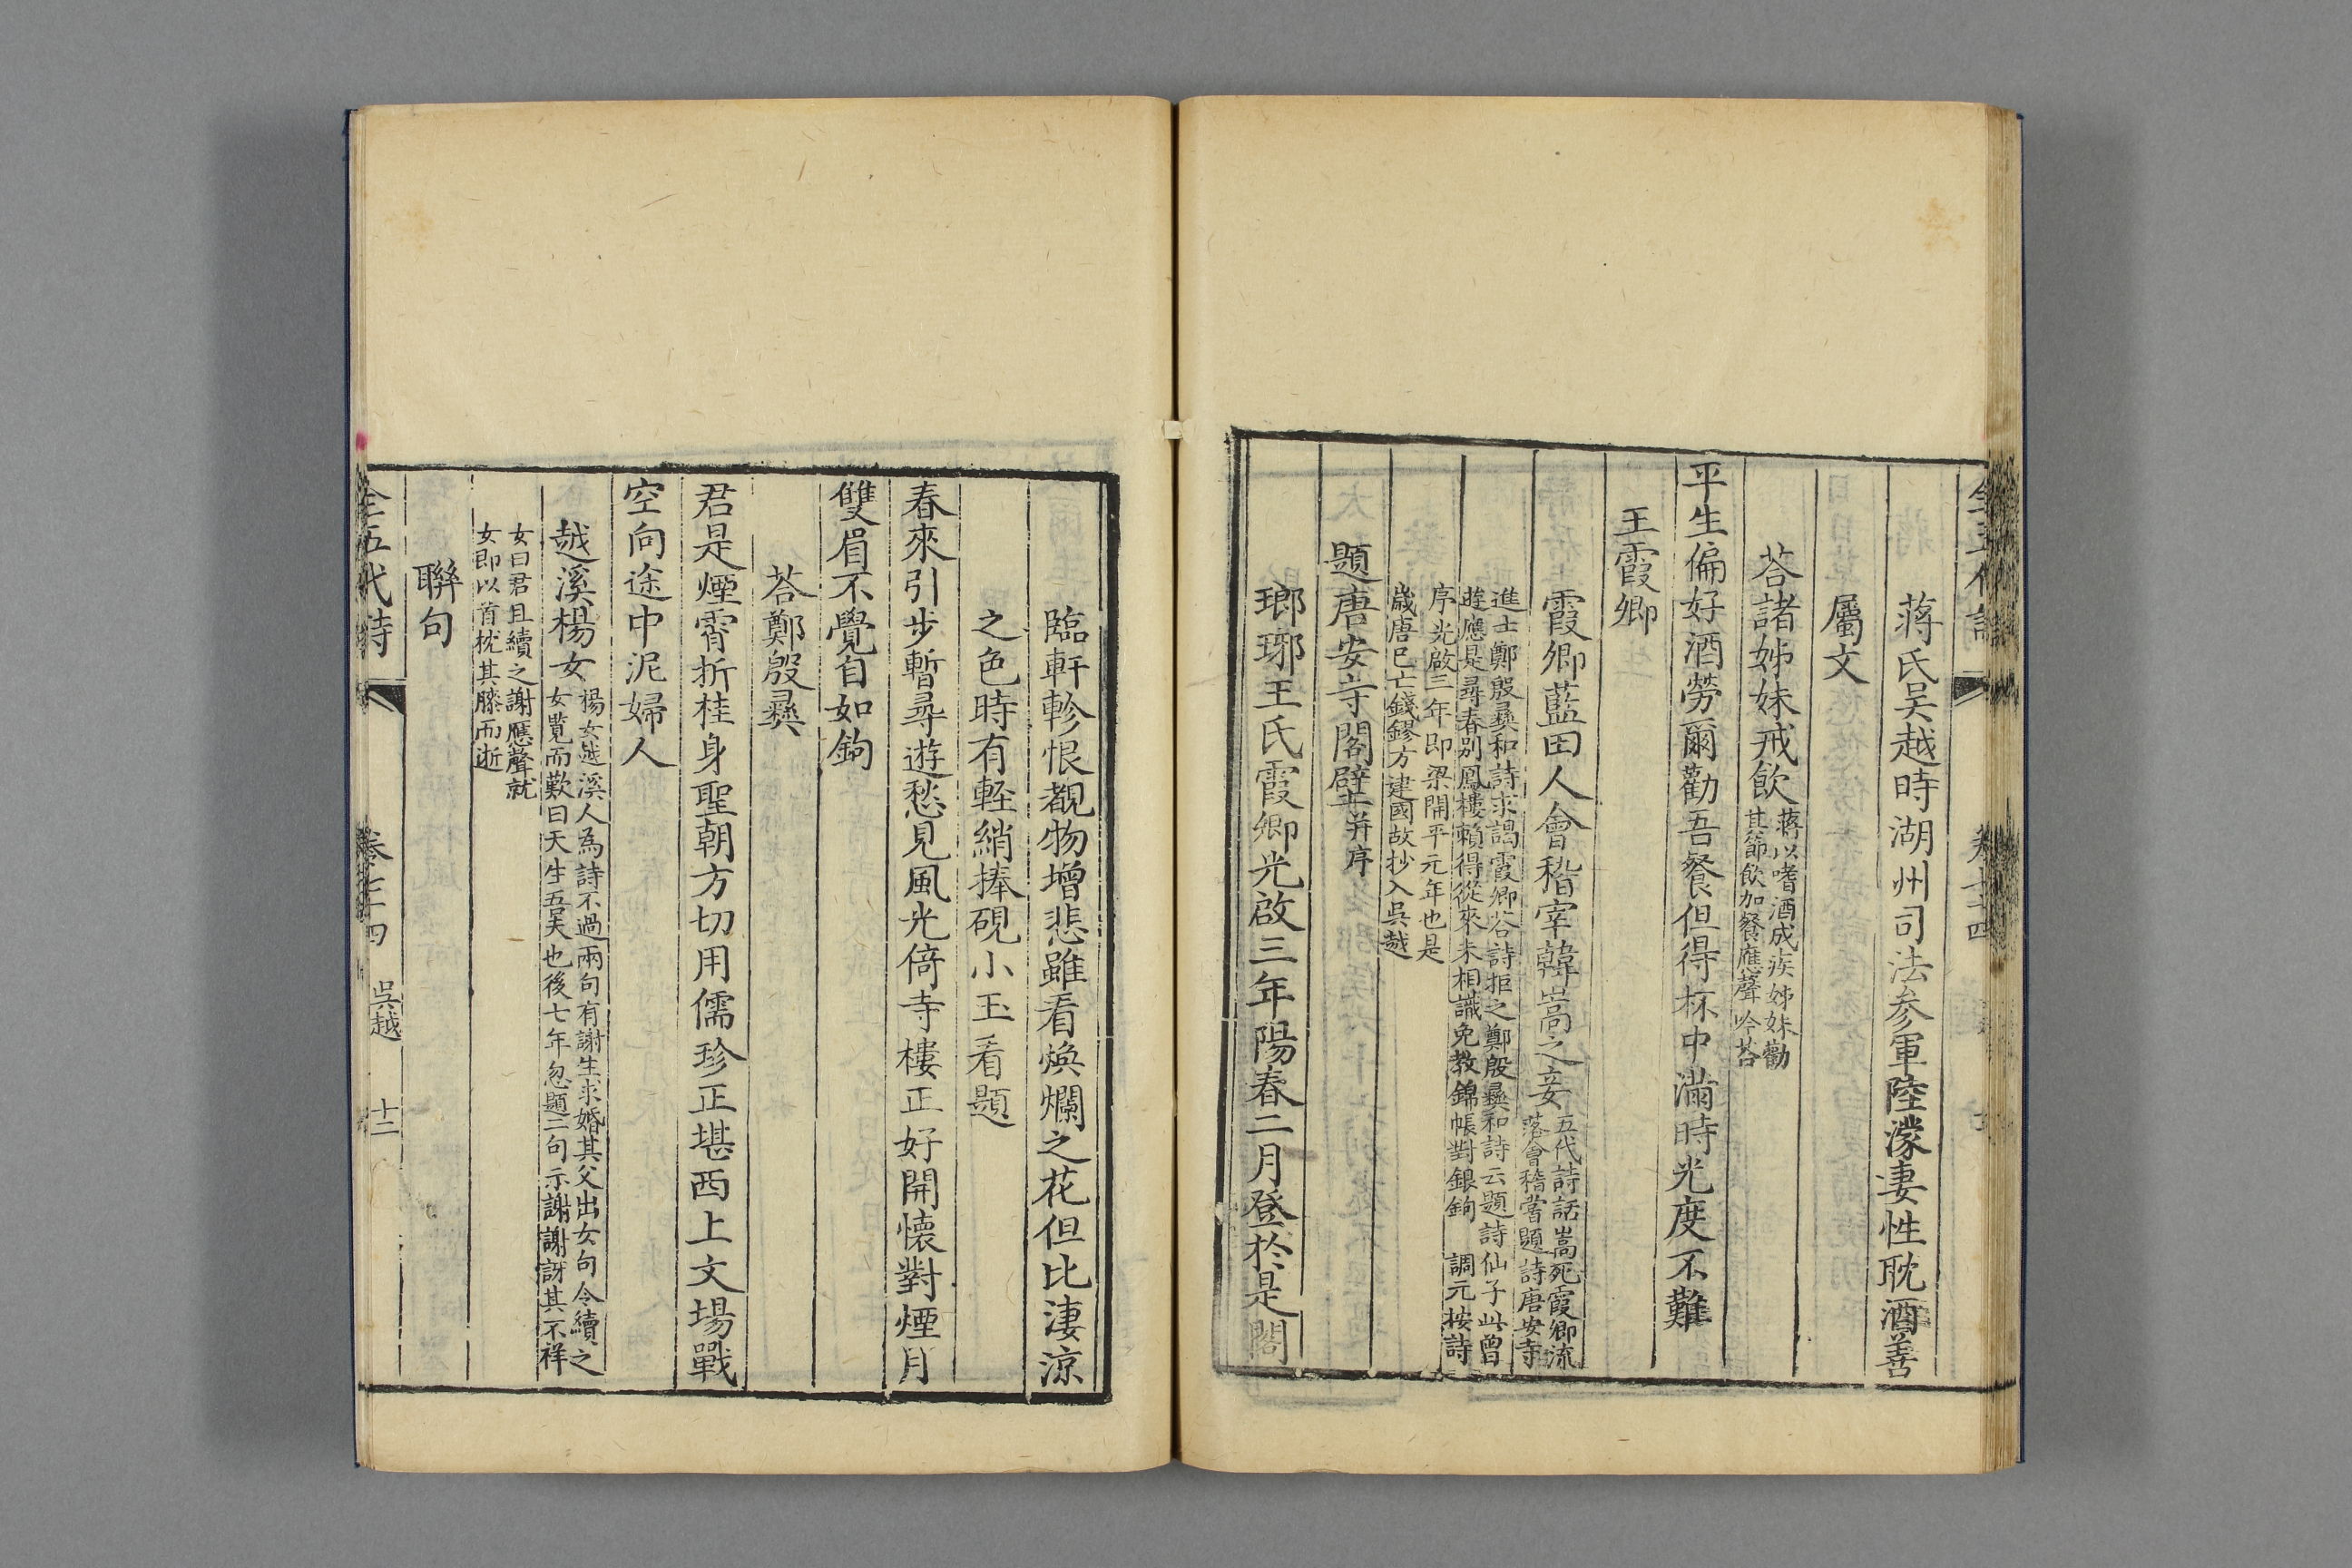 蔣氏吳越時湖州司法參軍陸濛妻性耽酒善
屬文
荅諸姊妹戒飲蔣以嗜酒成疾姊妹勸
其節飲加餐應聲吟荅
平生偏好酒勞爾勸吾餐但得杯中滿時光度不難
王霞卿
霞卿藍田人會稽宰韓嵩之妾五代詩話嵩死霞卿流
落會稽嘗題詩唐安寺
進士鄭殷彝和詩求謁霞卿荅詩拒之鄭殷彝和詩云題詩仙子此曾
應是尋春別鳳樓賴得從來未相識免教錦帳對銀鉤 調元按詩
序光啟三年即梁開平元年也是
歲唐已亡錢鏐方建國故抄入吳越
題唐安寺閣壁并序
瑯琊王氏霞卿光啟三年陽春二月登於是閣
臨軒軫恨覩物增悲雖看煥爛之花但比淒涼
之色時有輕綃捧硯小玉看題
春來引步暫尋遊愁見風光倚寺樓正好開懷對煙月
雙眉不覺自如鉤
荅鄭殷彝
君是煙霄折桂身聖朝方切用儒珍正堪西上文場戰
空向途中泥婦人
越溪楊女楊女越溪人為詩不過兩句有謝生求婚其父出女句令續之
女覽而歎曰天生吾夫也後七年忽題二句示謝謝訝其不祥
女曰君且續之謝應聲就
女即以首枕其膝而逝
聯句
全五代詩 卷七十四 吳越 十二